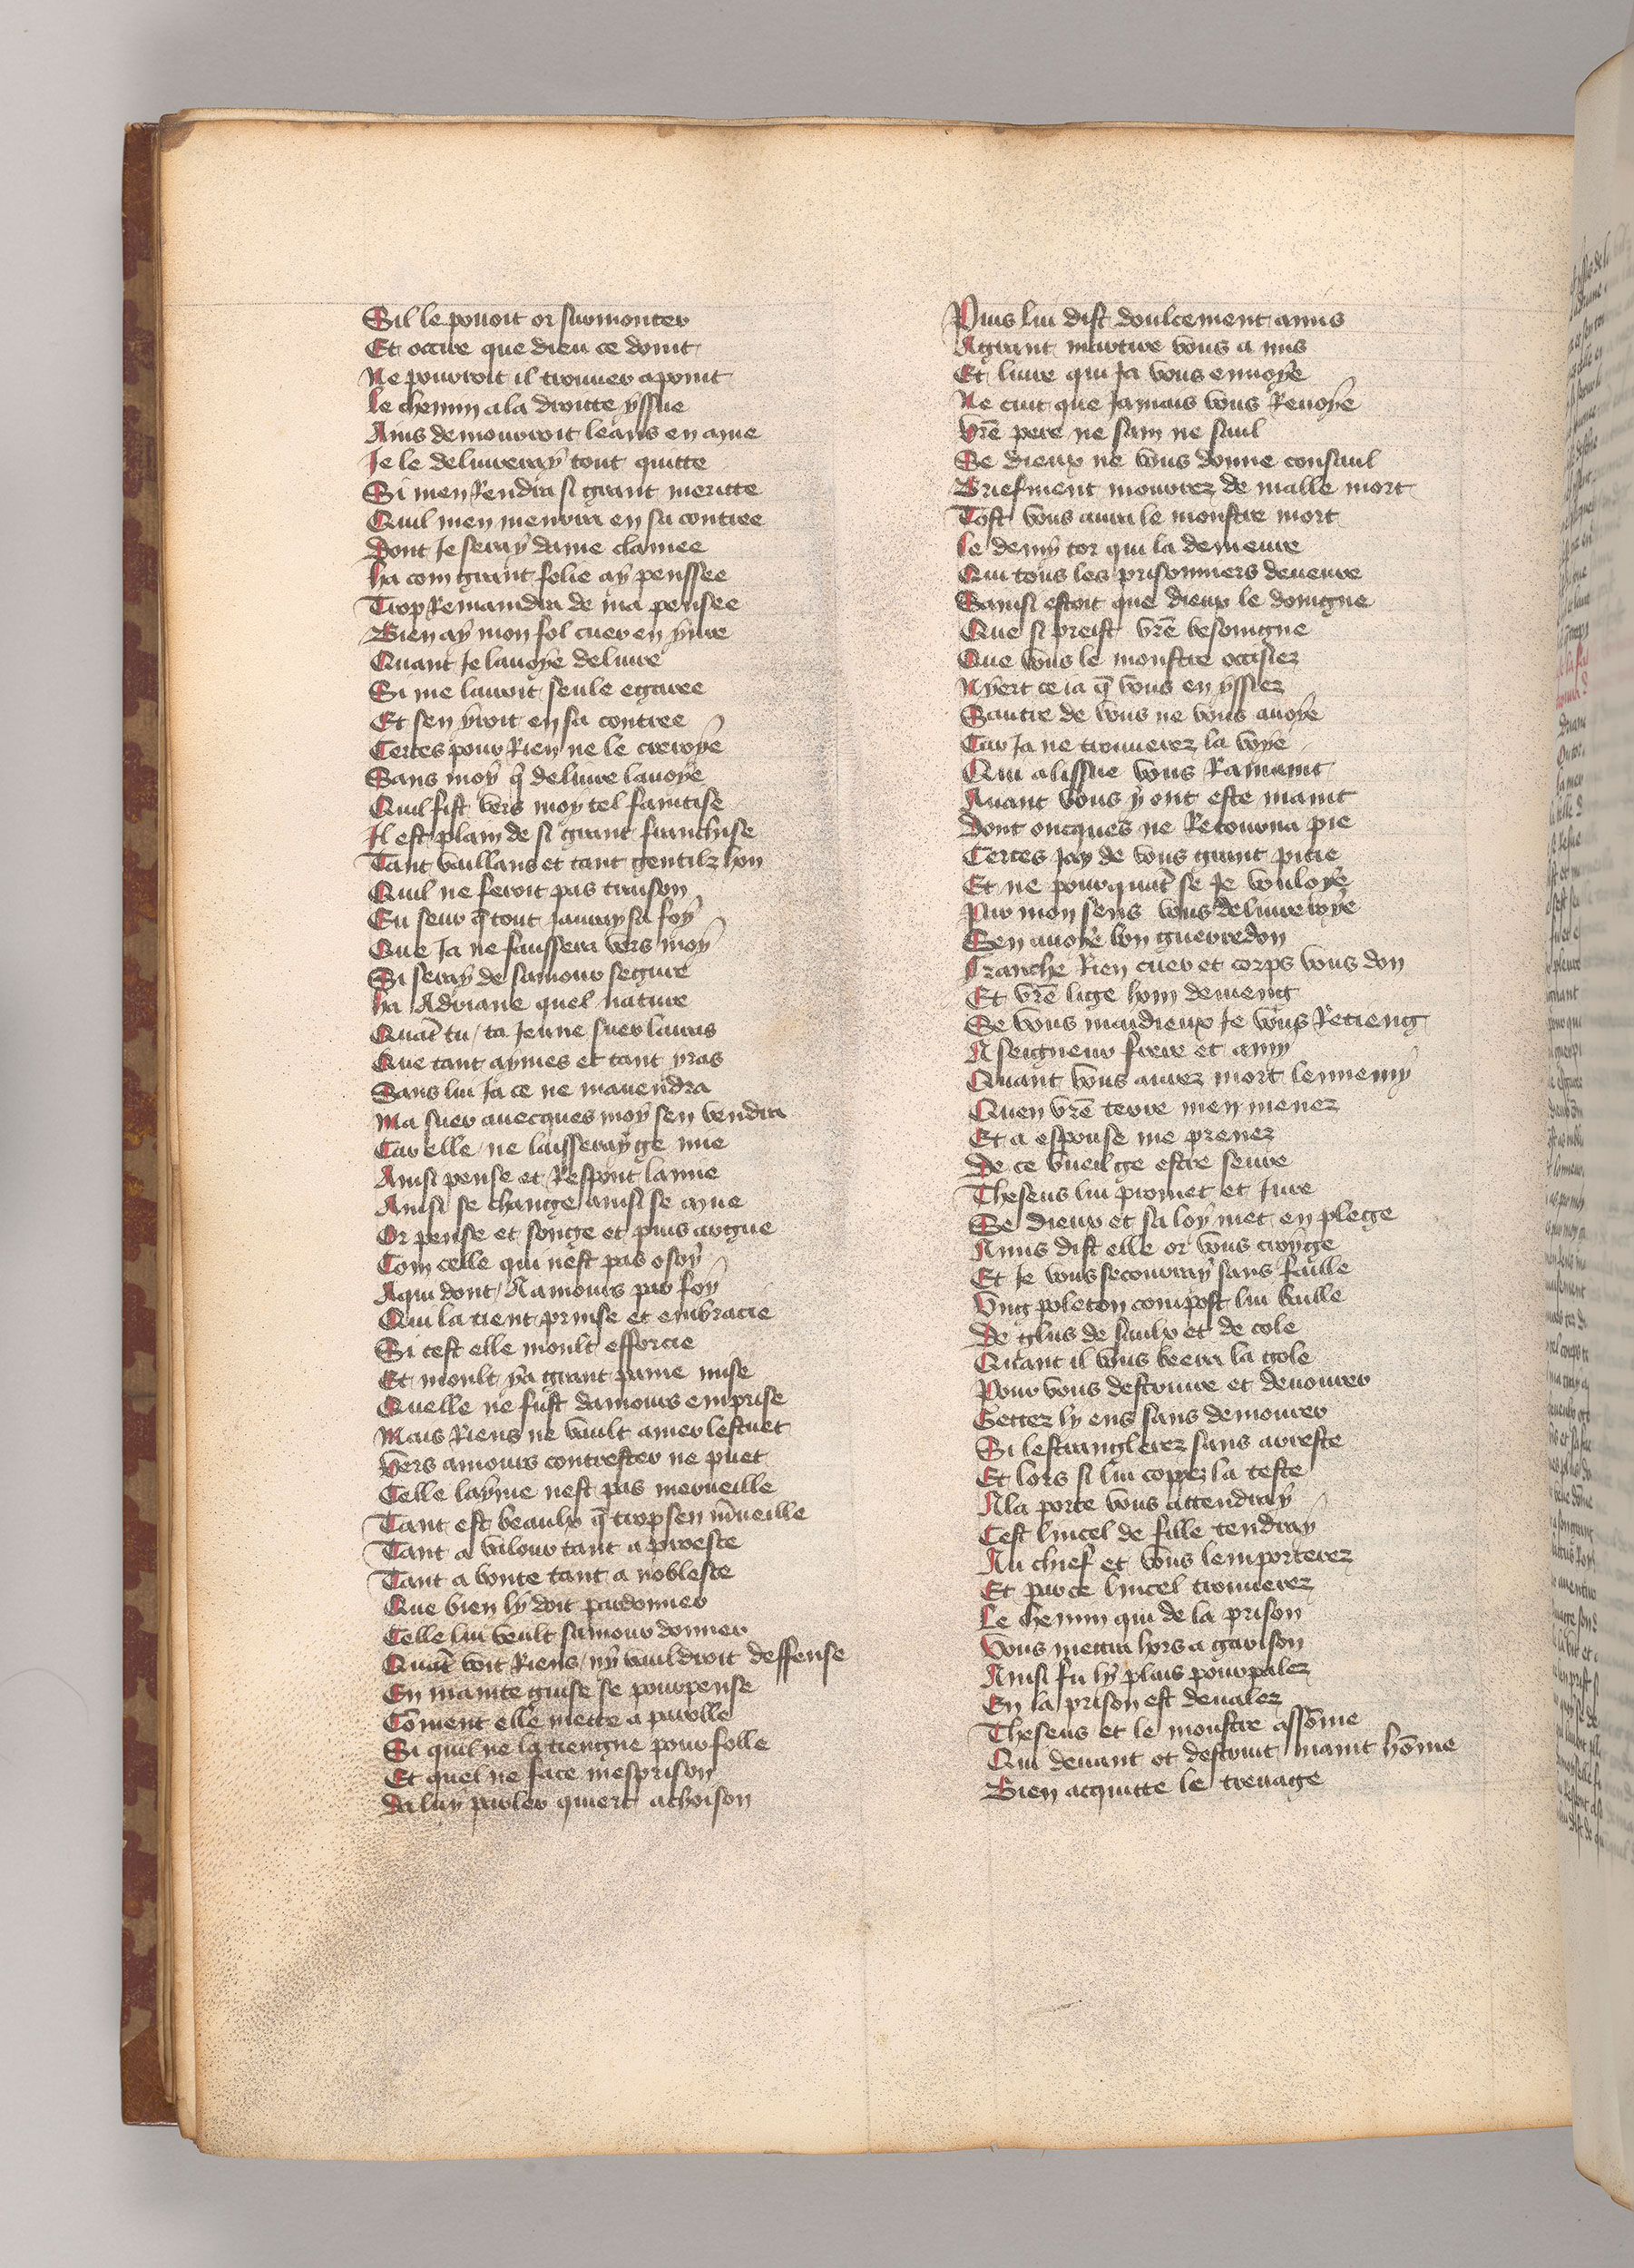 Sil le pouoit or surmonter
Et occire que dieu ce doint
Ne pourroit il trouuer apoint
Le chemin ala droitte yssue
Ains demourroit leans en aiue
Je le deliureray tout quitte
Si men Rendra si grant meritte
Quil men menrra en sa contree
Dont Je seray dame clamee
ha com grant folie ay penssee
Trop Remaindra de ma pensee
Bien ay mon fol cuer en yure
Quant Je lauoye deliure
Si me lairoit seule egaree
Et sen yroit en sa contree
Certes pour Rien ne le creroye
Sans moy q̄ deliure lauoye
Quil fist vers moy tel faintise
Il est plain de si grant franchise
Tant vaillans et tant gentilz hon
Quil ne feroit pas traison
En seur q̄ tout Jauray sa foy
Que Ja ne faussera vers moy
Si seray de samour segure
ha Adriane quel nature
Quāt tu / ta Jeune suer lairas
Que tant aymes et tant yras
Sans lui Ja ce ne mauendra
Ma suer auecques moy sen vendra
Car elle / ne laisseray ge mie
Ainsi pense et Respont lamie
Ainsi se change ainsi se aiue
Or pense et songe et puis argue
Com celle qui nest pas osoy
Aqui dont / Aamours par foy
Qui la tient prinse et embracie
Si cest elle moult efforcie
Et moult ya grant paine mise
Quelle ne fust damours emprise
Mais Riens ne vault amer lestuet
Vers amours contrester ne puet
Celle layme nest pas merueille
Tant est beaulx q̄ trop sen m̄ueille
Tant a valour tant a proeste
Tant a bonte tant a nobleste
Que bien ly doit pardonner
Celle lui veult samour donner
Quāt voit Riens / ny vauldroit deffense
En mainte guise se pourpense
Cōment elle mette a parolle
Si quil ne la tiengne pour folle
Et quel ne face mesprison
Da luy parler quiert achoison
Puis lui dist doulcement amis
Agrant martire vous a mis
Et liure qui Ja vous enuoye
Ne cuit que Jamais vous Reuoye
Vrē pere ne sain ne sauf
Se dieux ne vous donne consaul
Briefment mourrez de malle mort
Tost vous aura le monstre mort
Le demy tor qui la demeure
Qui tous les prisonniers deueure
Sainsi estoit que dieux le doingne
Que si preist vrē besoingne
Que vous le monstre occisiez
Nyert ce ia q̄ vous en yssiez
Sautre de vous ne vous auoye
Car Ja ne trouuerez la voye
Qui alissue vous Ramaint
Auant vous y ont este maint
Dont oncques ne Retourna pie
Certes Jay de vous grant pitie
Et ne pourquāt se Je vouloye
Par mon sens vous deliureroye
Sen auoye bon guerredon
Franche Rien cuer et corps vous don
Et vrē lige hom deuieng
Se vous maidieux Je vous Retieng
A seigneur frere et amy
Quant vous aurez mort lennemy
Quen vrē terre men menez
Et a espouse me prenez
De ce vueil ge estre seure
Theseus lui promet et Jure
Se dieux et sa loy met en plege
Amis dist elle or vous croy ge
Et Je vous secourray sans faille
Vng poleton compost lui baille
De glus de saulx et de cole
Quant il vous beera la gole
Pour vous destruire et deuourer
Gettez ly ens sans demourer
Si lestranglerez sans arreste
Et lors si lui coppez la teste
Ala porte vous attendray
Cest lincel de fille tendray
Au chief et vous lemporterez
Et par ce lincel trouuerez
Le chemin qui de la prison
Vous mettra hors a garison
Ainsi fu ly plais pourpalez
En la prison est deualez
Theseus et le monstre assōme
Qui deuant ot destruit maint hōme
Bien acquitte le treuage